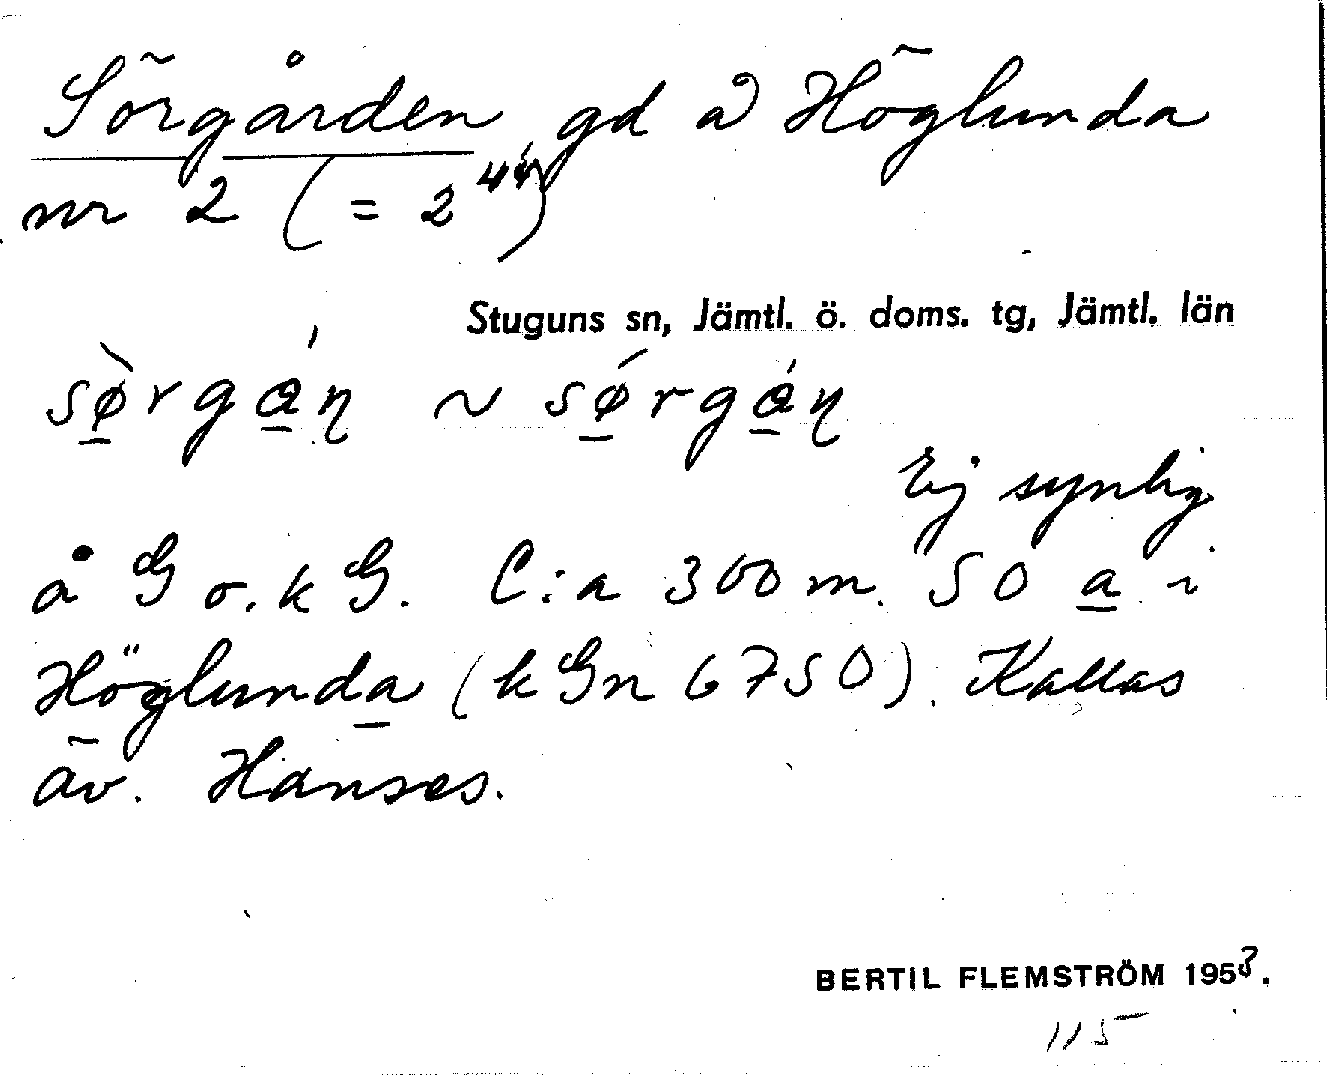 Sörgården gd å Höglunda
nr 2 (= 2⁴⁴)
Stuguns sn, Jämtl. ö. doms. tg, Jämtl. län
sø̀rgáṇ ~ sǿrgáṇ
Ej synlig
å G o. k G. C:a 300 m. SO a i
Höglunda (kGn 6750). Kallas
äv. Hanses.
BERTIL FLEMSTRÖM 1953.
115